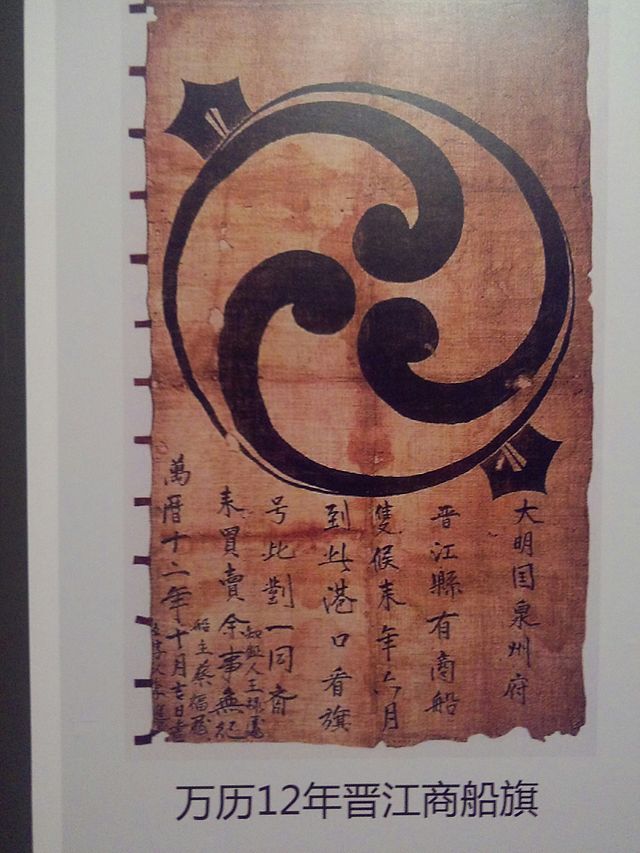 大明国泉州府
晋江縣有商船
隻候来年六月
到此港口看旗
号此對一同斉
来買賣余事無紀
萬暦十二年十月吉日書
船主蔡福
万历12年晋江商船旗